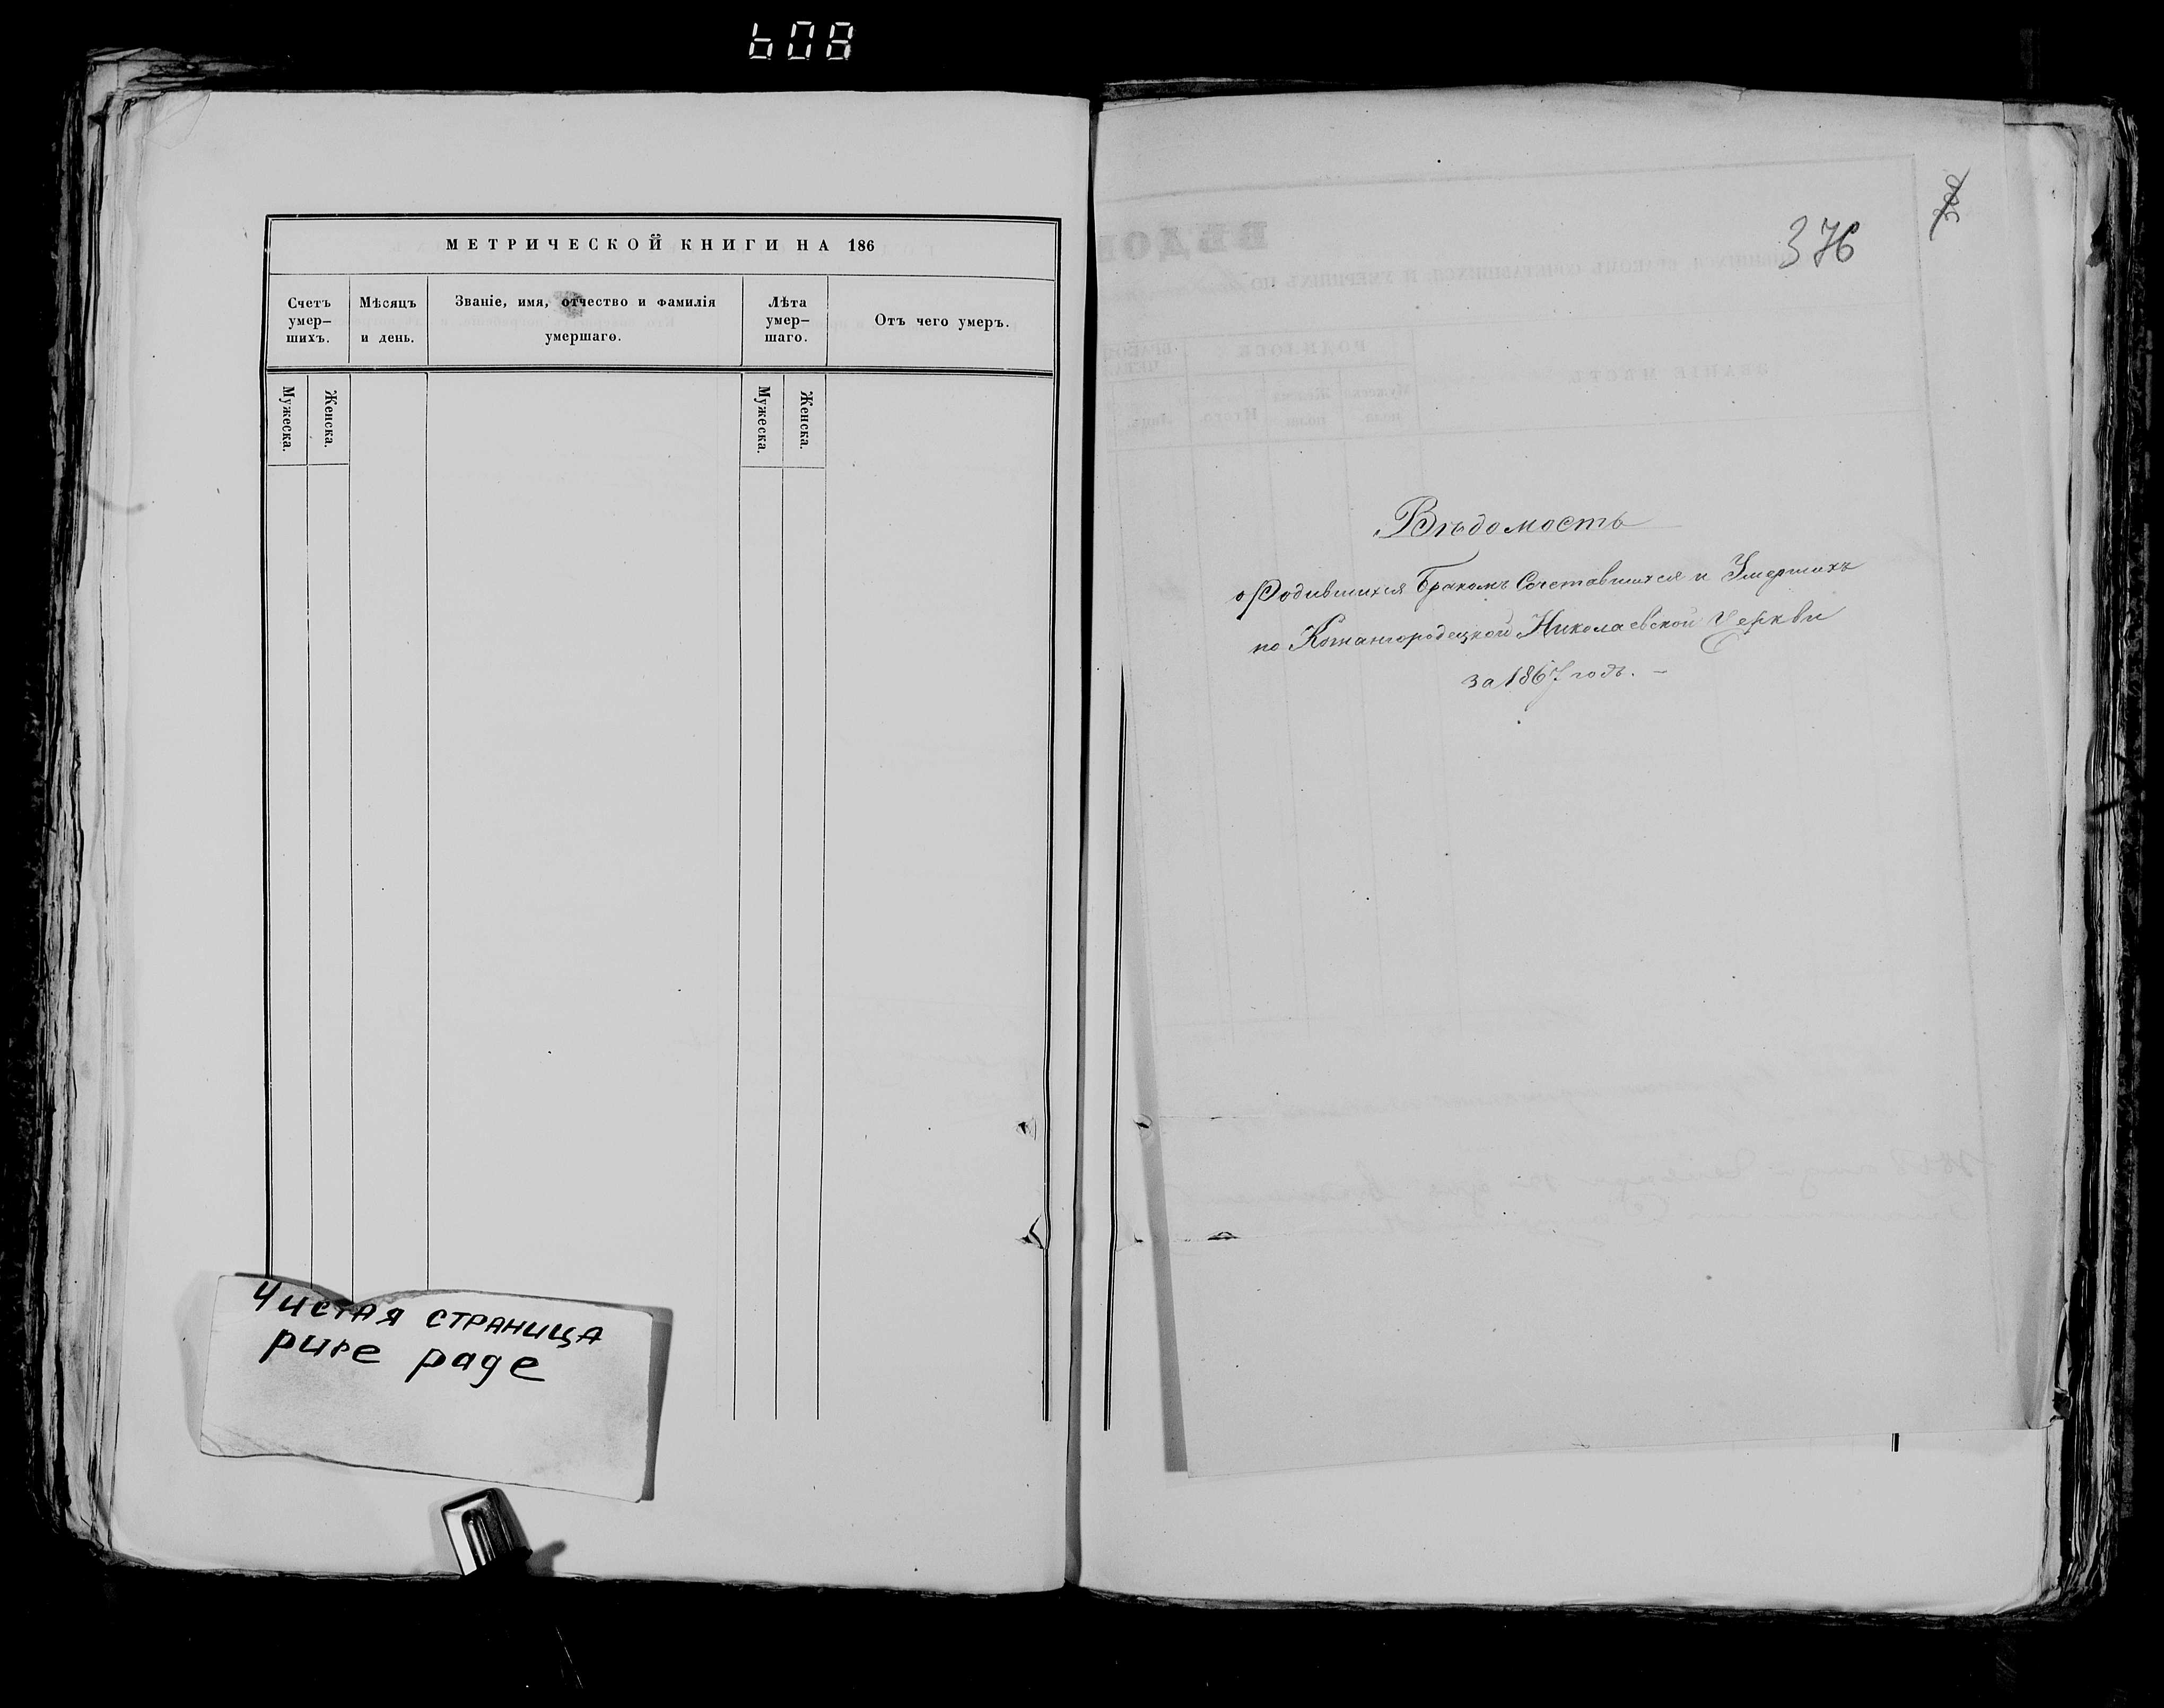 608
МЕТРИЧЕСКОЙ КНИГИ НА 186
Счетъ умер-шихъ.
Мѣсяцъ и день.
Званіе, имя, отчество и фамилія умершаго.
Лѣта умер-шаго.
Отъ чего умеръ.
Мужеска.
Женска.
Мужеска.
Женска.
Чистая страница
pure page
376
Вѣдомость
о Родившихся Бракомъ Сочетавшихся и Умершихъ
по Кожангородецкой Николаевской Церкви
за 1867 годъ. –